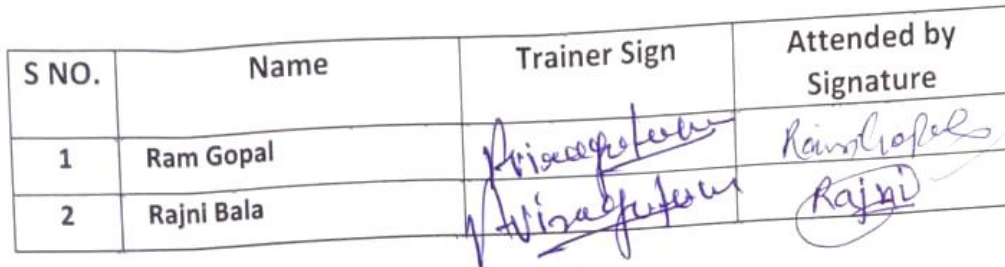 S NO. Name Trainer Sign Attended by Signature
1 Ram Gopal Ram Gopal
2 Rajni Bala Rajni